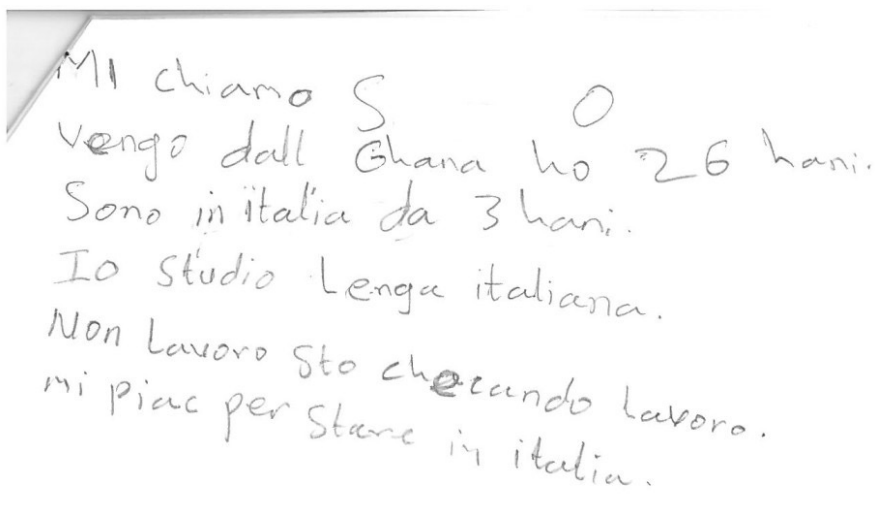 MI chiamo S O
Vengo dall Ghana ho 26 hani.
Sono in italia da 3 hani.
Io studio Lenga italiana.
Non Lavoro Sto checando Lavoro.
mi piac per Stare in italia.